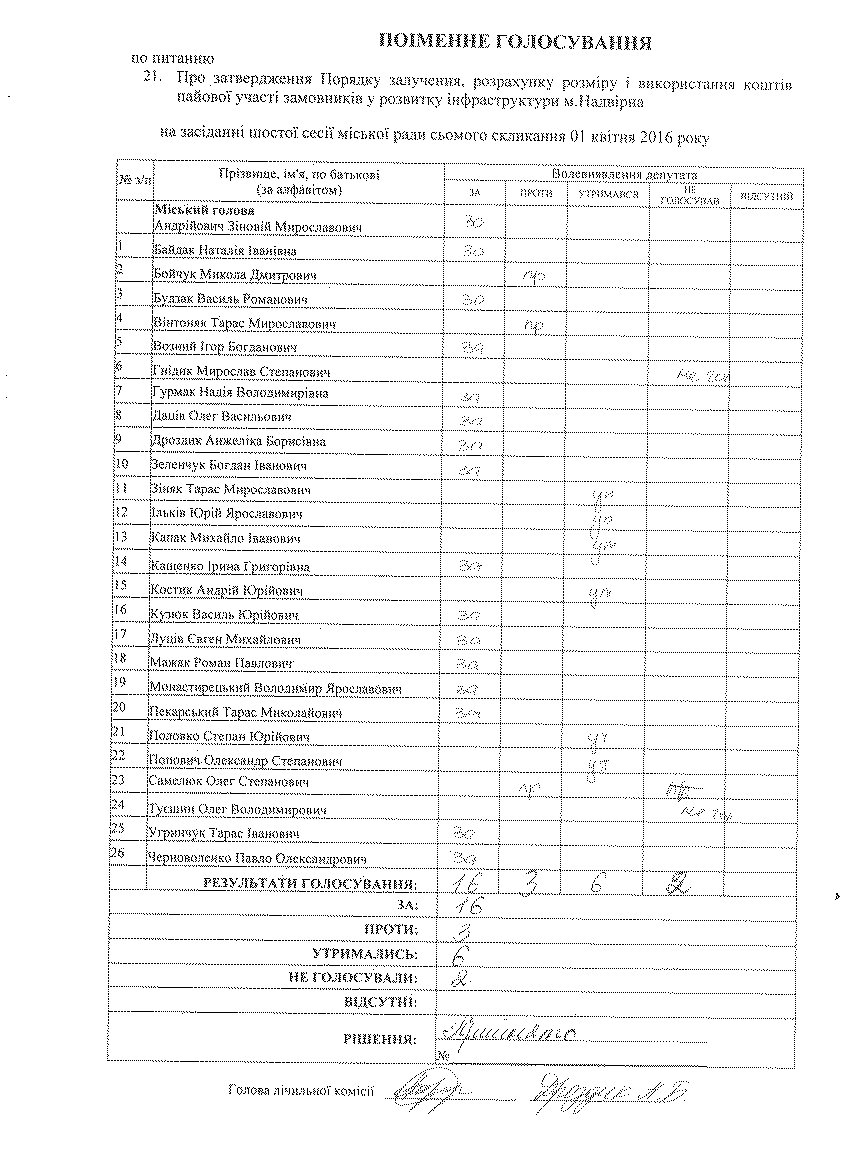 ПОІМЕННЕ ГОЛОСУВАННЯ
по питанню
21. Про затвердження Порядку залучення, розрахунку розміру і використання коштів
пайової участі замовників у розвитку інфраструктури м.Надвірна
на засіданні шостої сесії міської ради сьомого скликання 01 квітня 2016 року
№ з/п Прізвище, ім'я, по батькові (за алфавітом) Волевиявлення депутата
ЗА ПРОТИ УТРИМАВСЯ НЕ ГОЛОСУВАВ ВІДСУТНІЙ
Міський голова
Андрійович Зіновій Мирославович за
1 Байдак Наталія Іванівна за
2 Бойчук Микола Дмитрович пр
3 Будзак Василь Романович за
4 Вінтоняк Тарас Мирославович пр
5 Возний Ігор Богданович за
6 Гнідик Мирослав Степанович не гол
7 Гурмак Надія Володимирівна за
8 Даців Олег Васильович за
9 Дроздик Анжеліка Борисівна за
10 Зеленчук Богдан Іванович за
11 Зіняк Тарас Мирославович ут
12 Ільків Юрій Ярославович ут
13 Капак Михайло Іванович ут
14 Кащенко Ірина Григорівна за
15 Костик Андрій Юрійович ут
16 Кузюк Василь Юрійович за
17 Луців Євген Михайлович за
18 Мажак Роман Павлович за
19 Монастирецький Володимир Ярославович за
20 Пекарський Тарас Миколайович за
21 Половко Степан Юрійович ут
22 Попович Олександр Степанович ут
23 Самелюк Олег Степанович пр
24 Туєшин Олег Володимирович не гол
25 Угринчук Тарас Іванович за
26 Черноволенко Павло Олександрович за
РЕЗУЛЬТАТИ ГОЛОСУВАННЯ: 16 3 6 2
ЗА: 16
ПРОТИ: 3
УТРИМАЛИСЬ: 6
НЕ ГОЛОСУВАЛИ: 2
ВІДСУТНІ:
РІШЕННЯ: Прийнято
№
Голова лічильної комісії Дроздик А.Б.